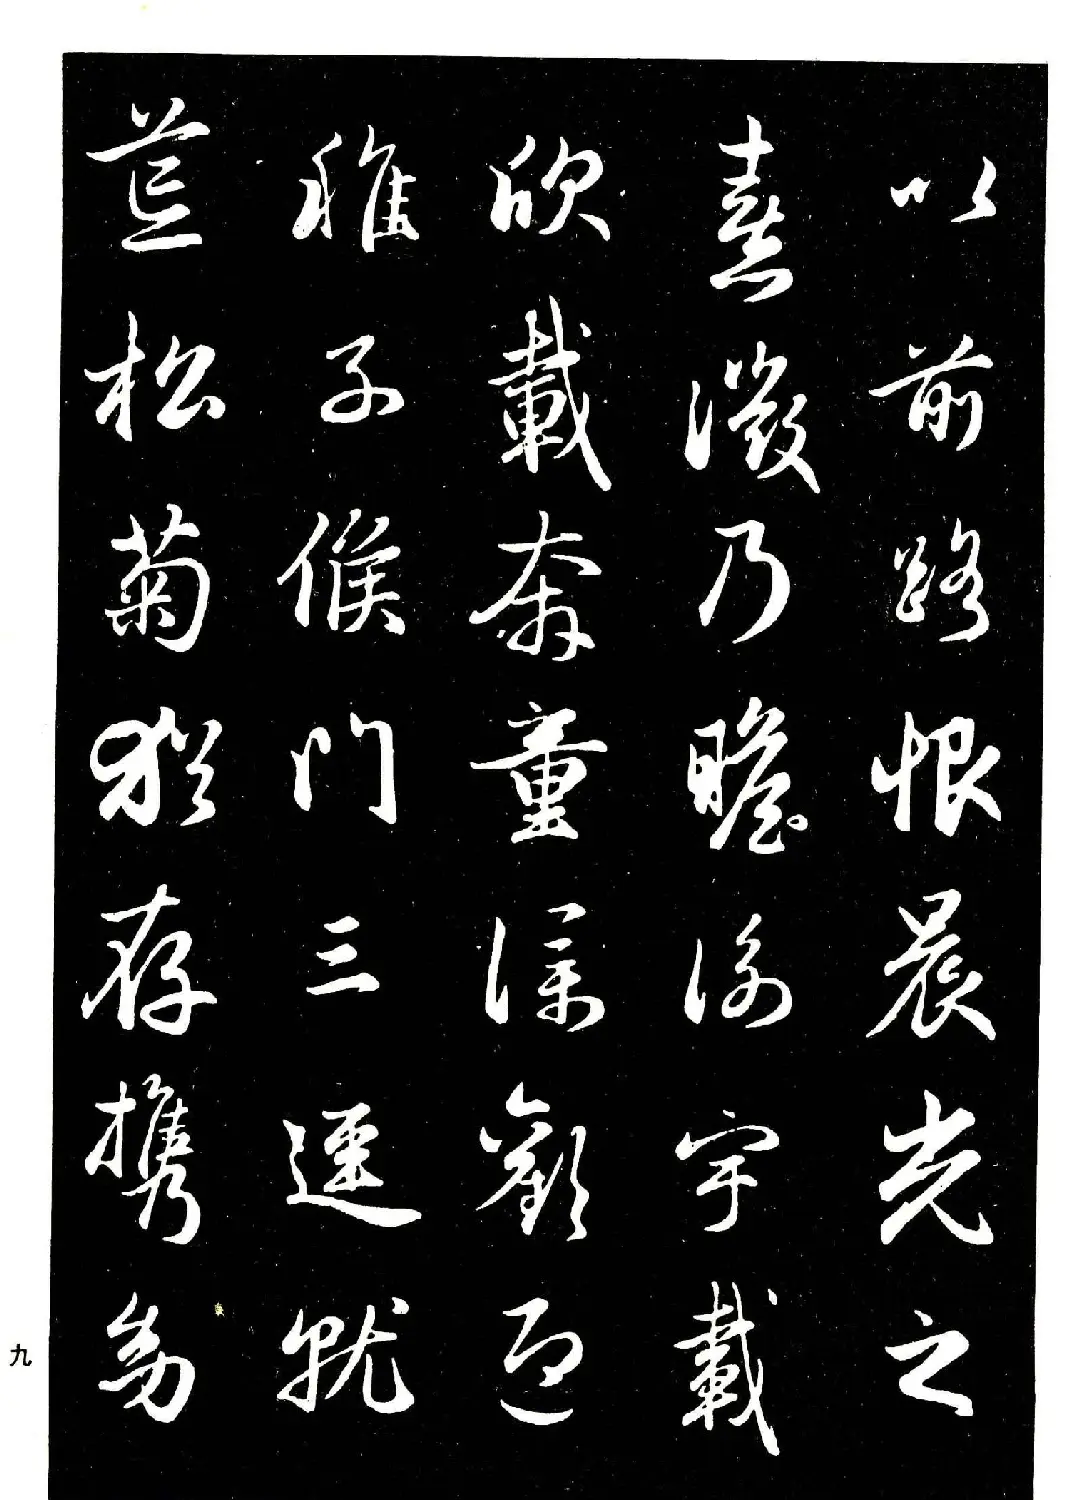 以前路恨晨光之
熹微乃瞻衡宇載
欣載奔童僕歡迎
稚子候門三逕就
荒松菊猶存携幼
九